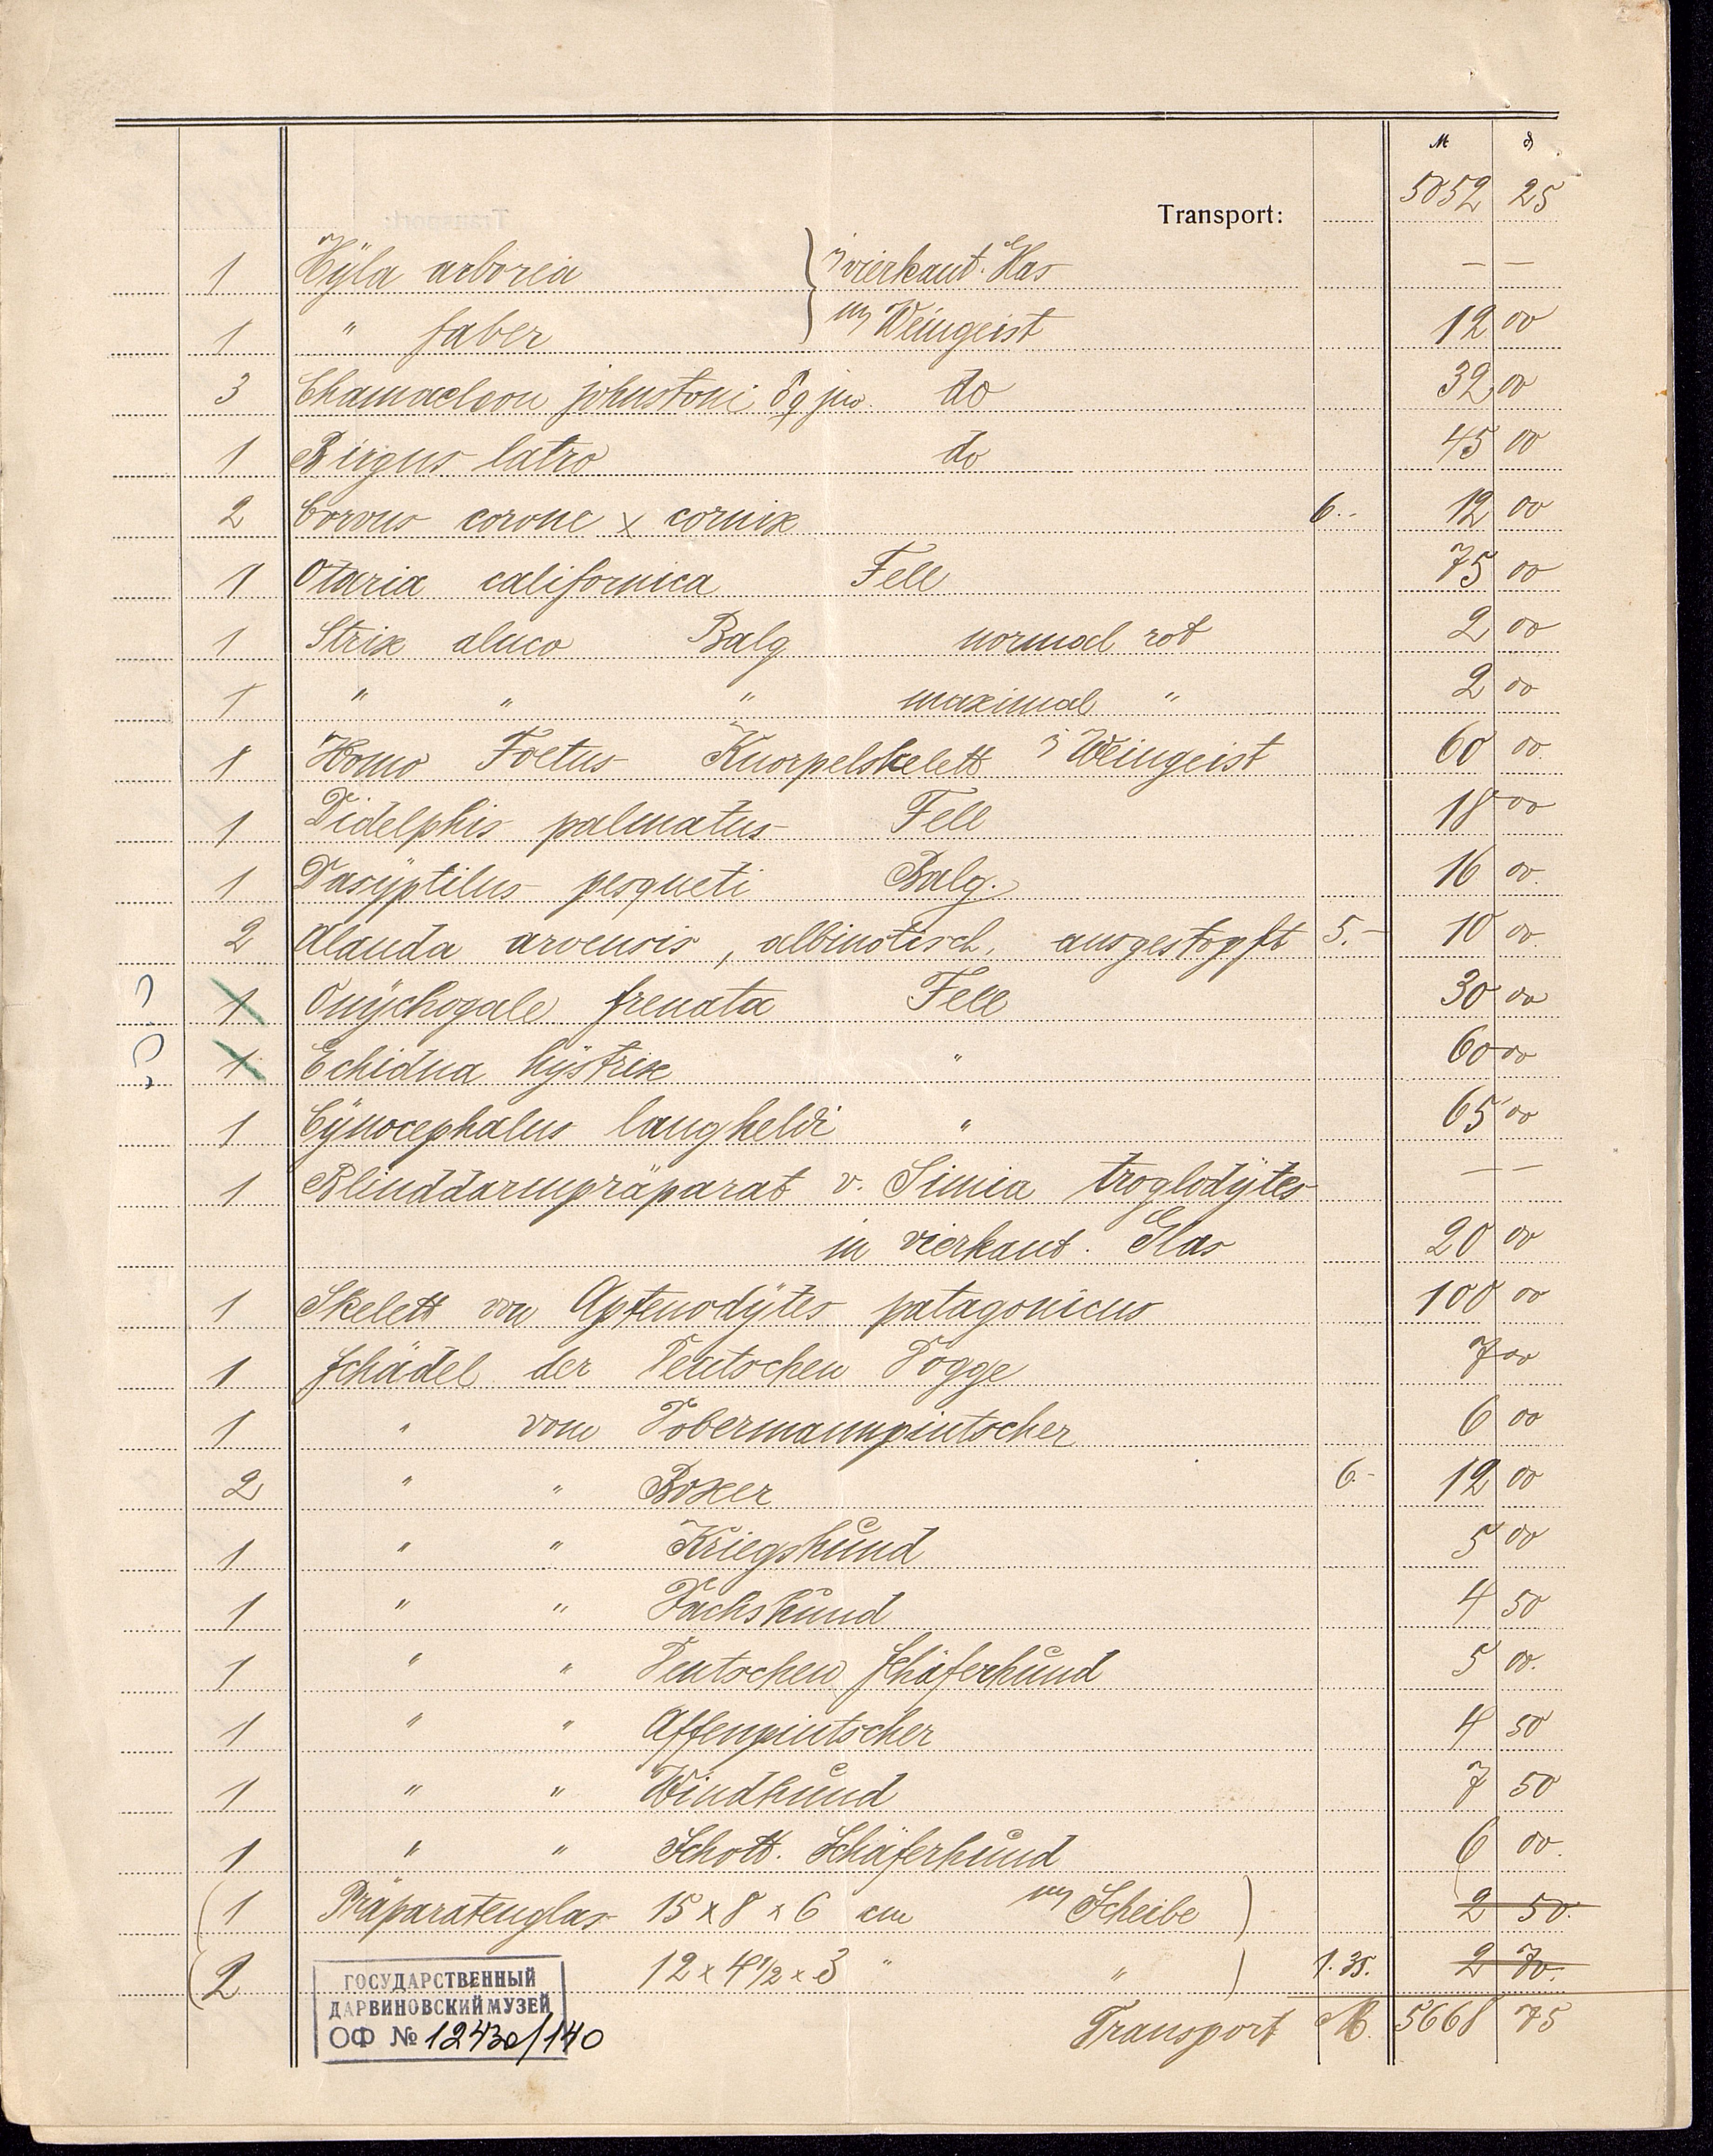 M ₰
Transport: 5052 25
1 Hÿla arborea } i/ vierkant. Glas — —
1 " faber } m/ Weingeist 12 00
3 Chamaeleon johnstoni ♂♀ juv. do 32 00
1 Birgus latro do 45 00
2 Corvus corone x cornix 6.- 12 00
1 Otaria californica Fell 75 00
1 Strix aluco Balg normal rot 2 00
1 " " " maximal " 2 00
1 Homo Foetus Knorpelskelett i/ Weingeist 60 00
1 Didelphis palmatus Fell 18 00
1 Dasÿptilus pesqueti Balg. 16 00
2 Alauda arvensis, albinotisch, ausgestopft 5.- 10 00
1 Onÿchogale frenata Fell 30 00
1 Echidna hÿstrix " 60 00
1 Cÿnocephalus langheldi " 65 00
1 Blinddarmpräparat v. Simia troglodÿtes — —
in vierkant. Glas 20 00
1 Skelett von Aptenodÿtes patagonicus 100 00
1 Schädel der Deutschen Dogge 7 00
1 " vom Dobermannpintscher 6 00
2 " " Boxer 6.- 12 00
1 " " Kriegshund 5 00
1 " " Dachshund 4 50
1 " " Deutschen Schäferhund 5 00.
1 " " Affenpintscher 4 50
1 " " Windhund 7 50
1 " " Schott. Schäferhund 6 00.
(1 Präparatenglas 15 x 8 x 6 cm m/ Scheibe) 2 50.
(2 12 x 4½ x 3 " " ) 1.35. 2 70.
Transport M. 5668 75
ГОСУДАРСТВЕННЫЙ
ДАРВИНОВСКИЙ МУЗЕЙ
ОФ № 12430/140